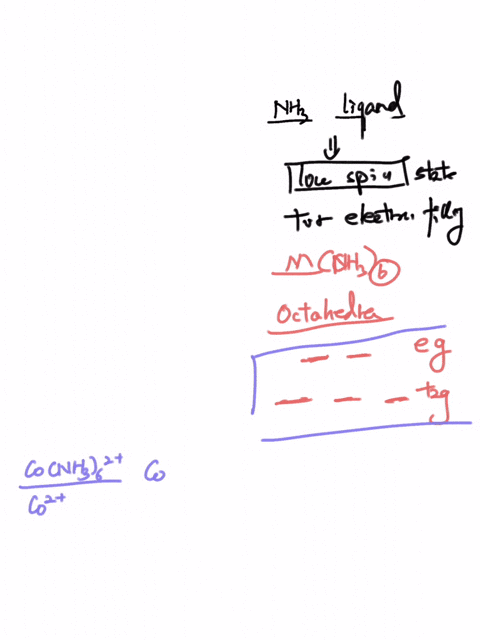 NH₃ ligand
⇓
low spin state
for electron filling
M(NH₃)₆
Octahedra
eg
t₂g
Co(NH₃)₆²⁺ Co
Co²⁺